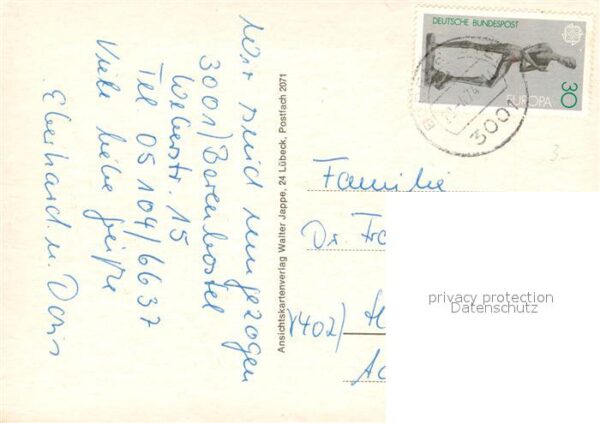 Wir sind umgezogen
3001/Berenbostel
Weberstr. 15
Tel 05104/6637
Viele liebe Grüße
Eberhard u. Doris
Ansichtskartenverlag Walter Jappe, 24 Lübeck, Postfach 2071
DEUTSCHE BUNDESPOST
EUROPA
30
3001
3.-
Familie
Dr.
privacy protection
Datenschutz